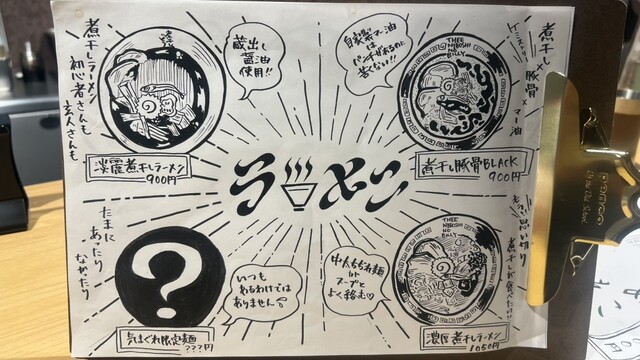 煮干しラーメン
初心者さんも
玄人さんも
蔵出し
醤油
使用!!
淡麗煮干しラーメン
900円
自家製マー油
は
パンチがあるのに
苦くない!!
煮干し×豚骨×マー油
THEE
NIBOSHI
NO
BILLY
煮干豚骨BLACK
900円
ラーメン
たまに
あったり
なかったり
?
いつも
あるわけでは
ありません
気まぐれ限定麺
???円
中太もちもち麺
が
スープと
よく絡む♡
思い切り
煮干しが食べたい!!
THEE
NIBOSHI
NO
BILLY
濃厚煮干しラーメン
1050円